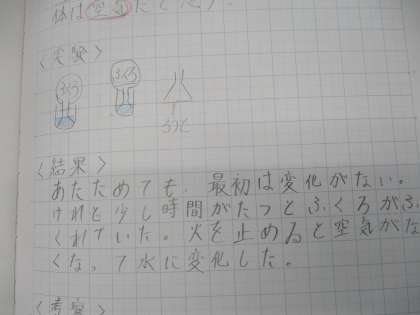 体は空気だと思う。
〈実験〉
ふくろ
ふくろ
ろうと
〈結果〉
あたためても、最初は変化がない。
けれど少し時間がたつとふくろがふ
くれていた。火を止めると空気がな
くなって水に変化した。
〈考察〉